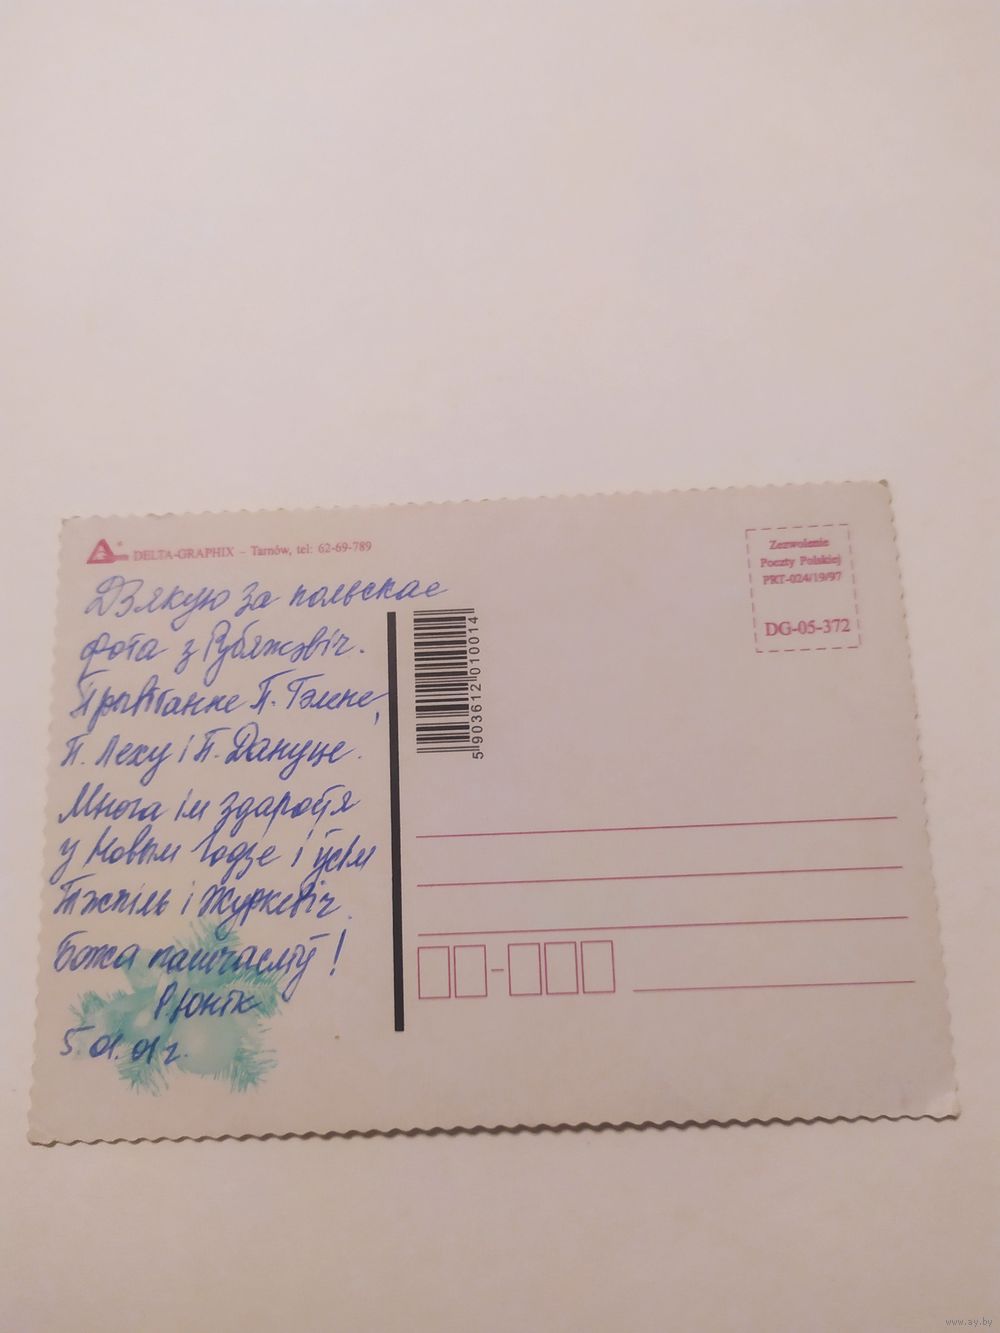 DELTA-GRAPHIX – Tarnów, tel: 62-69-789
Дзякую за польскае
фота з Рубяжэвіч.
Прывітанне П. Гэлене,
П. Леху і П. Дануце.
Многа ім здароўя
у Новым Годзе і ўсім
і Журкевіч.
Божа пашчасліў!
Р. Юнік
5.01.01 г.
5 903612 010014
Zezwolenie
Poczty Polskiej
PRT-024/19/97
DG-05-372
www.ay.by